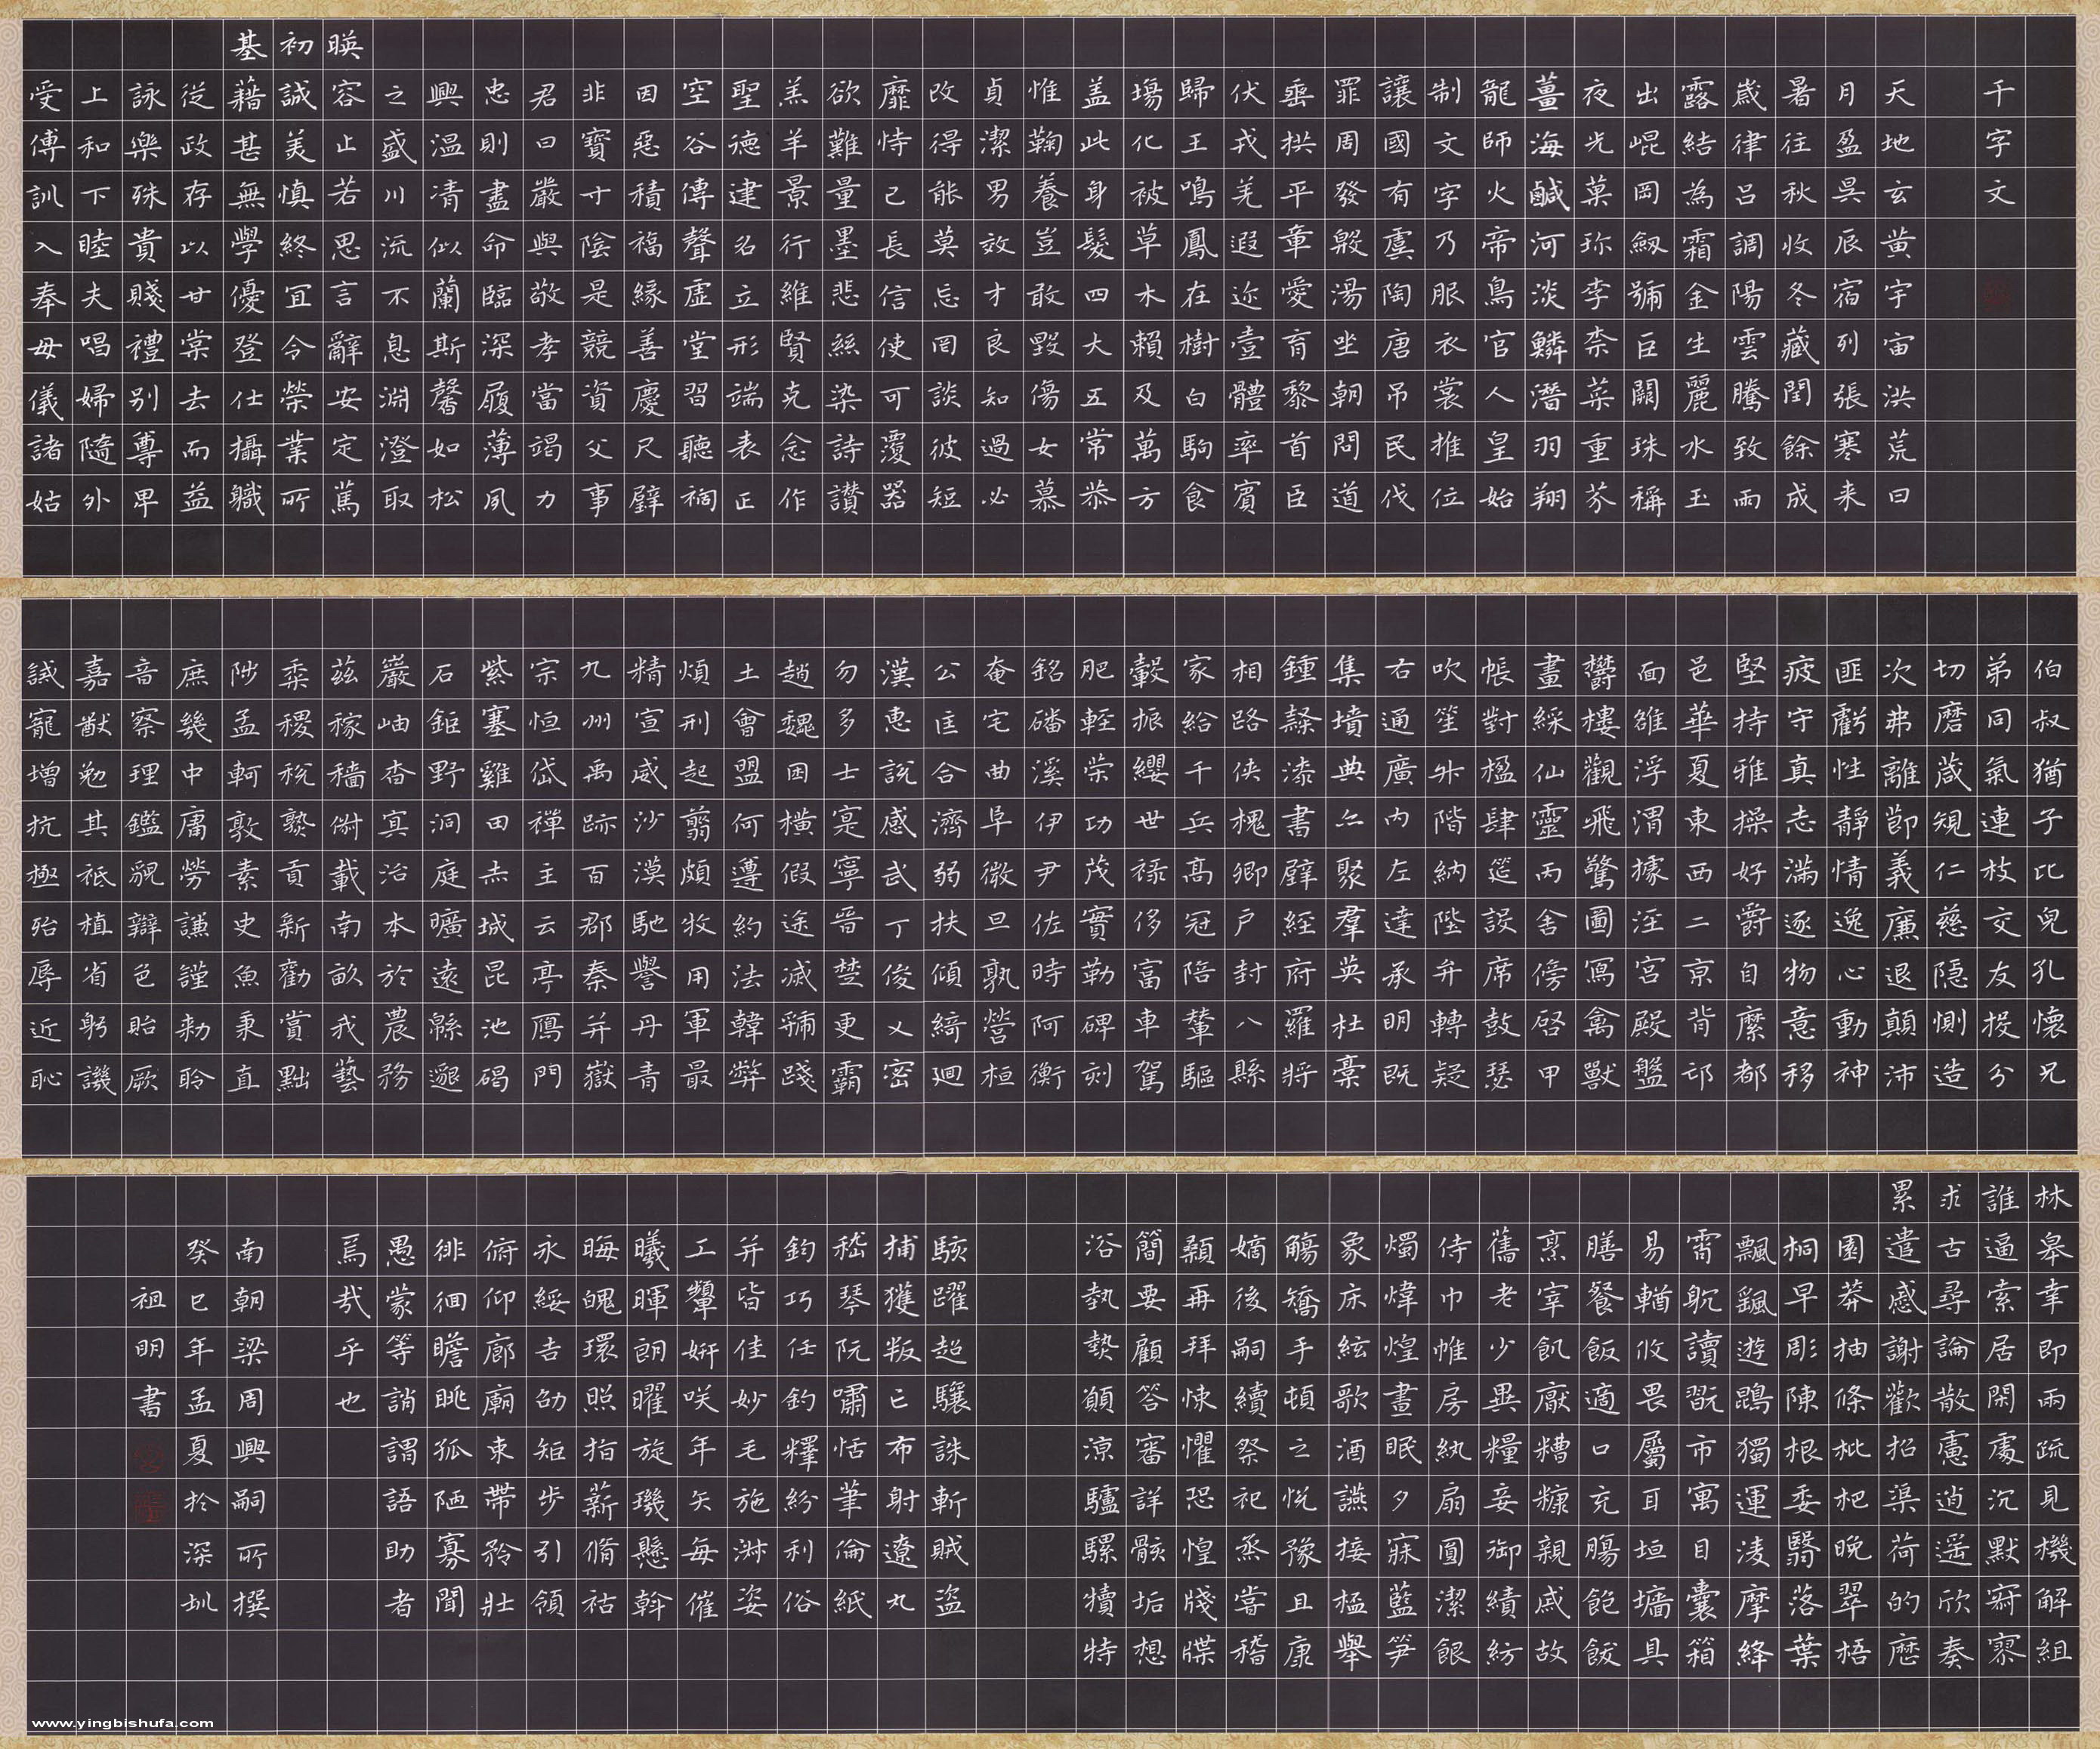 千字文
天地玄黄宇宙洪荒日
月盈昃辰宿列張寒来
暑往秋收冬藏閏餘成
歲律呂調陽雲騰致雨
露結為霜金生麗水玉
出崐岡劔號巨闕珠稱
夜光菓珎李柰菜重芥
薑海鹹河淡鱗潛羽翔
龍師火帝鳥官人皇始
制文字乃服衣裳推位
讓國有虞陶唐吊民伐
罪周發殷湯坐朝問道
垂拱平章愛育黎首臣
伏戎羌遐迩壹體率賓
歸王鳴鳳在樹白駒食
場化被草木賴及萬方
盖此身髮四大五常恭
惟鞠養豈敢毀傷女慕
貞潔男效才良知過必
改得能莫忘罔談彼短
靡恃己長信使可覆器
欲難量墨悲絲染詩讃
羔羊景行維賢克念作
聖德建名立形端表正
空谷傳聲虛堂習聽禍
因惡積福緣善慶尺璧
非寶寸陰是競資父事
君曰嚴與敬孝當竭力
忠則盡命臨深履薄夙
興温凊似蘭斯馨如松
之盛川流不息淵澄取
暎容止若思言辭安定篤
初誠美慎終宜令榮業所
基藉甚無學優登仕攝職
從政存以甘棠去而益
詠樂殊貴賤禮別尊卑
上和下睦夫唱婦隨外
受傅訓入奉母儀諸姑
伯叔猶子比兒孔懷兄
弟同氣連枝交友投分
切磨箴規仁慈隱惻造
次弗離節義廉退顛沛
匪虧性靜情逸心動神
疲守真志滿逐物意移
堅持雅操好爵自縻都
邑華夏東西二京背邙
面雒浮渭據涇宮殿盤
欝樓觀飛驚圖寫禽獸
畫綵仙靈丙舍傍啓甲
帳對楹肆筵設席鼓瑟
吹笙升階納陛弁轉疑
右通廣內左達承明既
集墳典亦聚羣英杜稾
鍾隸漆書壁經府羅將
相路俠槐卿戶封八縣
家給千兵高冠陪輦驅
轂振纓世祿侈富車駕
肥輕策功茂實勒碑刻
銘磻溪伊尹佐時阿衡
奄宅曲阜微旦孰營桓
公匡合濟弱扶傾綺迴
漢惠說感武丁俊乂密
勿多士寔寧晉楚更霸
趙魏困橫假途滅虢踐
土會盟何遵約法韓弊
煩刑起翦頗牧用軍最
精宣威沙漠馳譽丹青
九州禹跡百郡秦并嶽
宗恒岱禪主云亭鴈門
紫塞雞田赤城昆池碣
石鉅野洞庭曠遠緜邈
巖岫杳冥治本於農務
茲稼穡俶載南畝我藝
黍稷稅熟貢新勸賞黜
陟孟軻敦素史魚秉直
庶幾中庸勞謙謹勑聆
音察理鑑貌辯色貽厥
嘉猷勉其祗植省躬譏
誡寵增抗極殆辱近恥
林皋幸即兩疏見機解組
誰逼索居閑處沉默寂寥
求古尋論散慮逍遥欣奏
累遣慼謝歡招渠荷的歷
園莽抽條枇杷晚翠梧
桐早彫陳根委翳落葉
飄颻遊鵾獨運凌摩絳
霄耽讀翫市寓目囊箱
易輶攸畏屬耳垣墻具
膳餐飯適口充腸飽飫
烹宰飢厭糟糠親戚故
舊老少異糧妾御績紡
侍巾帷房紈扇圓潔銀
燭煒煌晝眠夕寐藍笋
象床絃歌酒讌接杯舉
觴矯手頓之悅豫且康
嫡後嗣續祭祀蒸嘗稽
顙再拜悚懼恐惶牋牒
簡要顧答審詳骸垢想
浴執熱願涼驢騾犢特
駭躍超驤誅斬賊盜
捕獲叛亡布射遼丸
嵇琴阮嘯恬筆倫紙
鈞巧任釣釋紛利俗
並皆佳妙毛施淑姿
工顰妍咲年矢每催
曦暉朗曜旋璣懸斡
晦魄環照指薪脩祜
永綏吉劭矩步引領
俯仰廊廟束帶矜莊
徘徊瞻眺孤陋寡聞
愚蒙等誚謂語助者
焉哉乎也
南朝梁周興嗣所撰
癸巳年孟夏於深圳
祖明書
www.yingbishufa.com